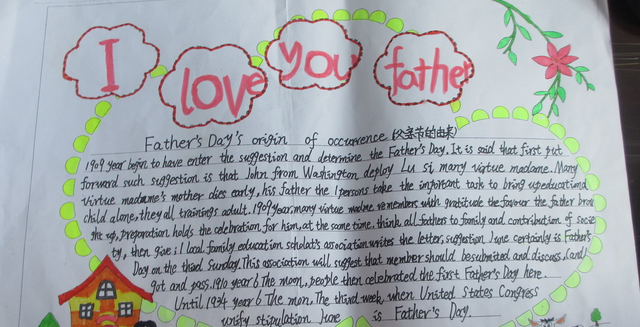 I love you father
Father's Day's origin of occurrence (父亲节的由来)
1909 year begin to have enter the suggestion and determine the Father's Day. It is said that first put
forward such suggestion is that John from Washington deploy Lu si many virtue madame. Many
virtue madame's mother dies early, his father the 1 persons take the important task to bring up educationd
child alone, they all trainings adult. 1909 year, many virtue madme remembers with gratitude the favour the father brou
the up, preparation holds the celebration for him, at the same time, think all fathers to family and contribution of socie
ty, then give: 1 local family education scholat's association writes the letter, suggestion June certainly is Father's
Day on the third Sunday. This association will suggest that member should be submited and discuss, (and
got and pass. 1910 year 6 The mon, people then celebrated the first Father's Day here.
Until 1934 year 6 The mon. The third week, when United States Congress
unify stipulation June is Father's Day